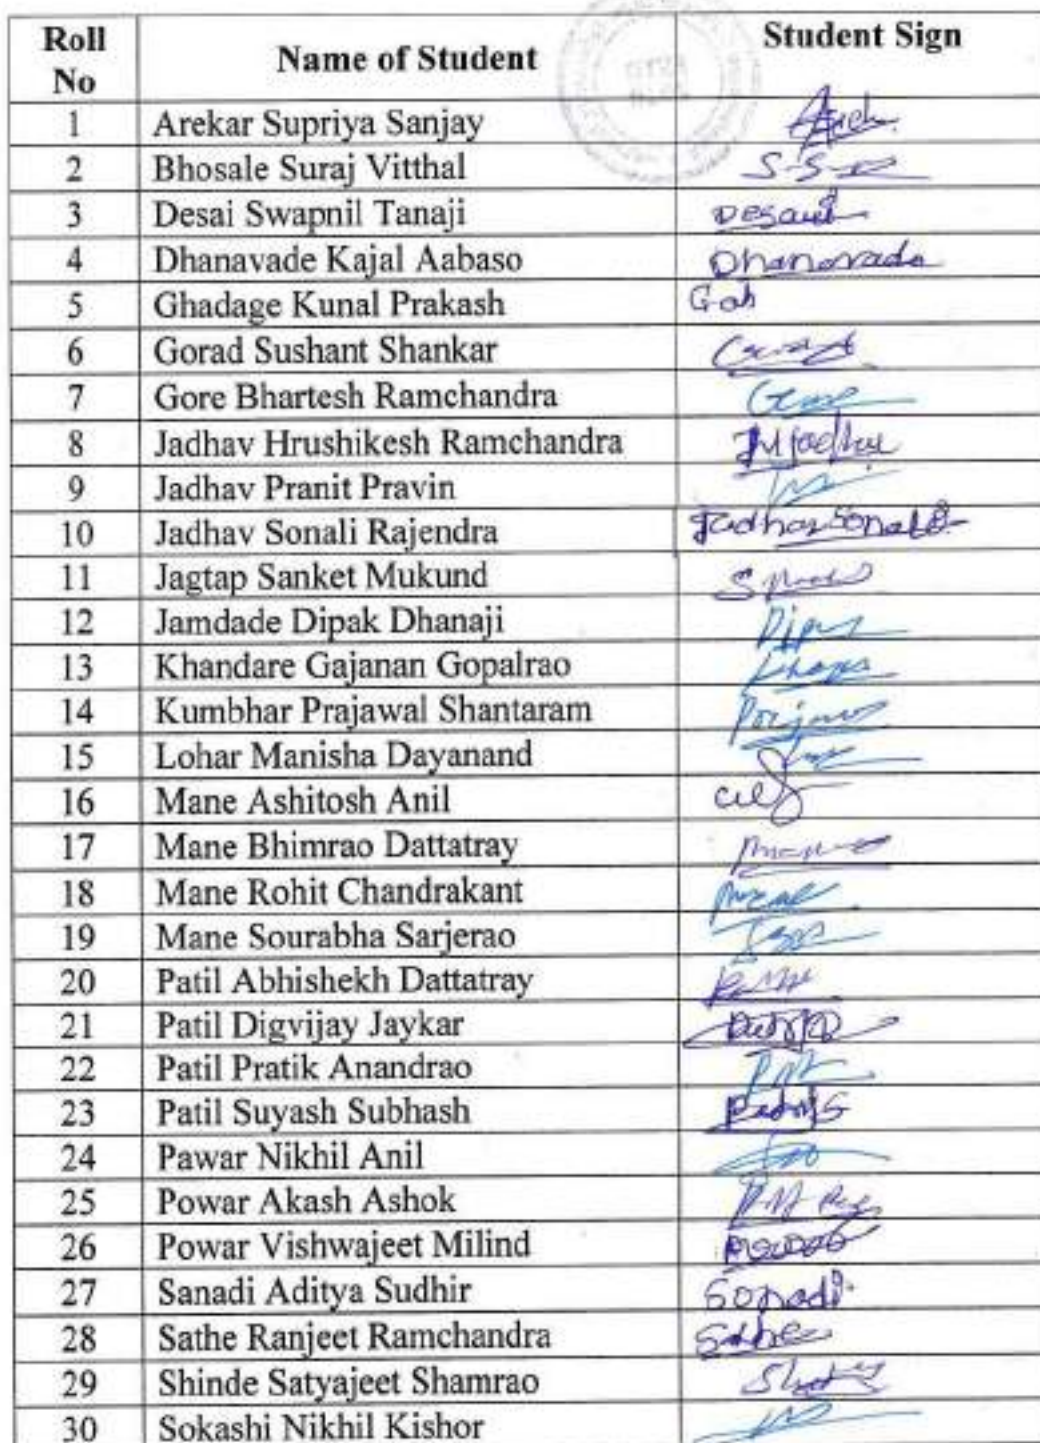 Roll No Name of Student Student Sign
1 Arekar Supriya Sanjay
2 Bhosale Suraj Vitthal
3 Desai Swapnil Tanaji Desai
4 Dhanavade Kajal Aabaso Dhanavade
5 Ghadage Kunal Prakash
6 Gorad Sushant Shankar
7 Gore Bhartesh Ramchandra
8 Jadhav Hrushikesh Ramchandra
9 Jadhav Pranit Pravin
10 Jadhav Sonali Rajendra Jadhav Sonali
11 Jagtap Sanket Mukund
12 Jamdade Dipak Dhanaji
13 Khandare Gajanan Gopalrao
14 Kumbhar Prajawal Shantaram
15 Lohar Manisha Dayanand
16 Mane Ashitosh Anil
17 Mane Bhimrao Dattatray
18 Mane Rohit Chandrakant
19 Mane Sourabha Sarjerao
20 Patil Abhishekh Dattatray
21 Patil Digvijay Jaykar
22 Patil Pratik Anandrao
23 Patil Suyash Subhash
24 Pawar Nikhil Anil
25 Powar Akash Ashok
26 Powar Vishwajeet Milind
27 Sanadi Aditya Sudhir Sanadi
28 Sathe Ranjeet Ramchandra
29 Shinde Satyajeet Shamrao
30 Sokashi Nikhil Kishor